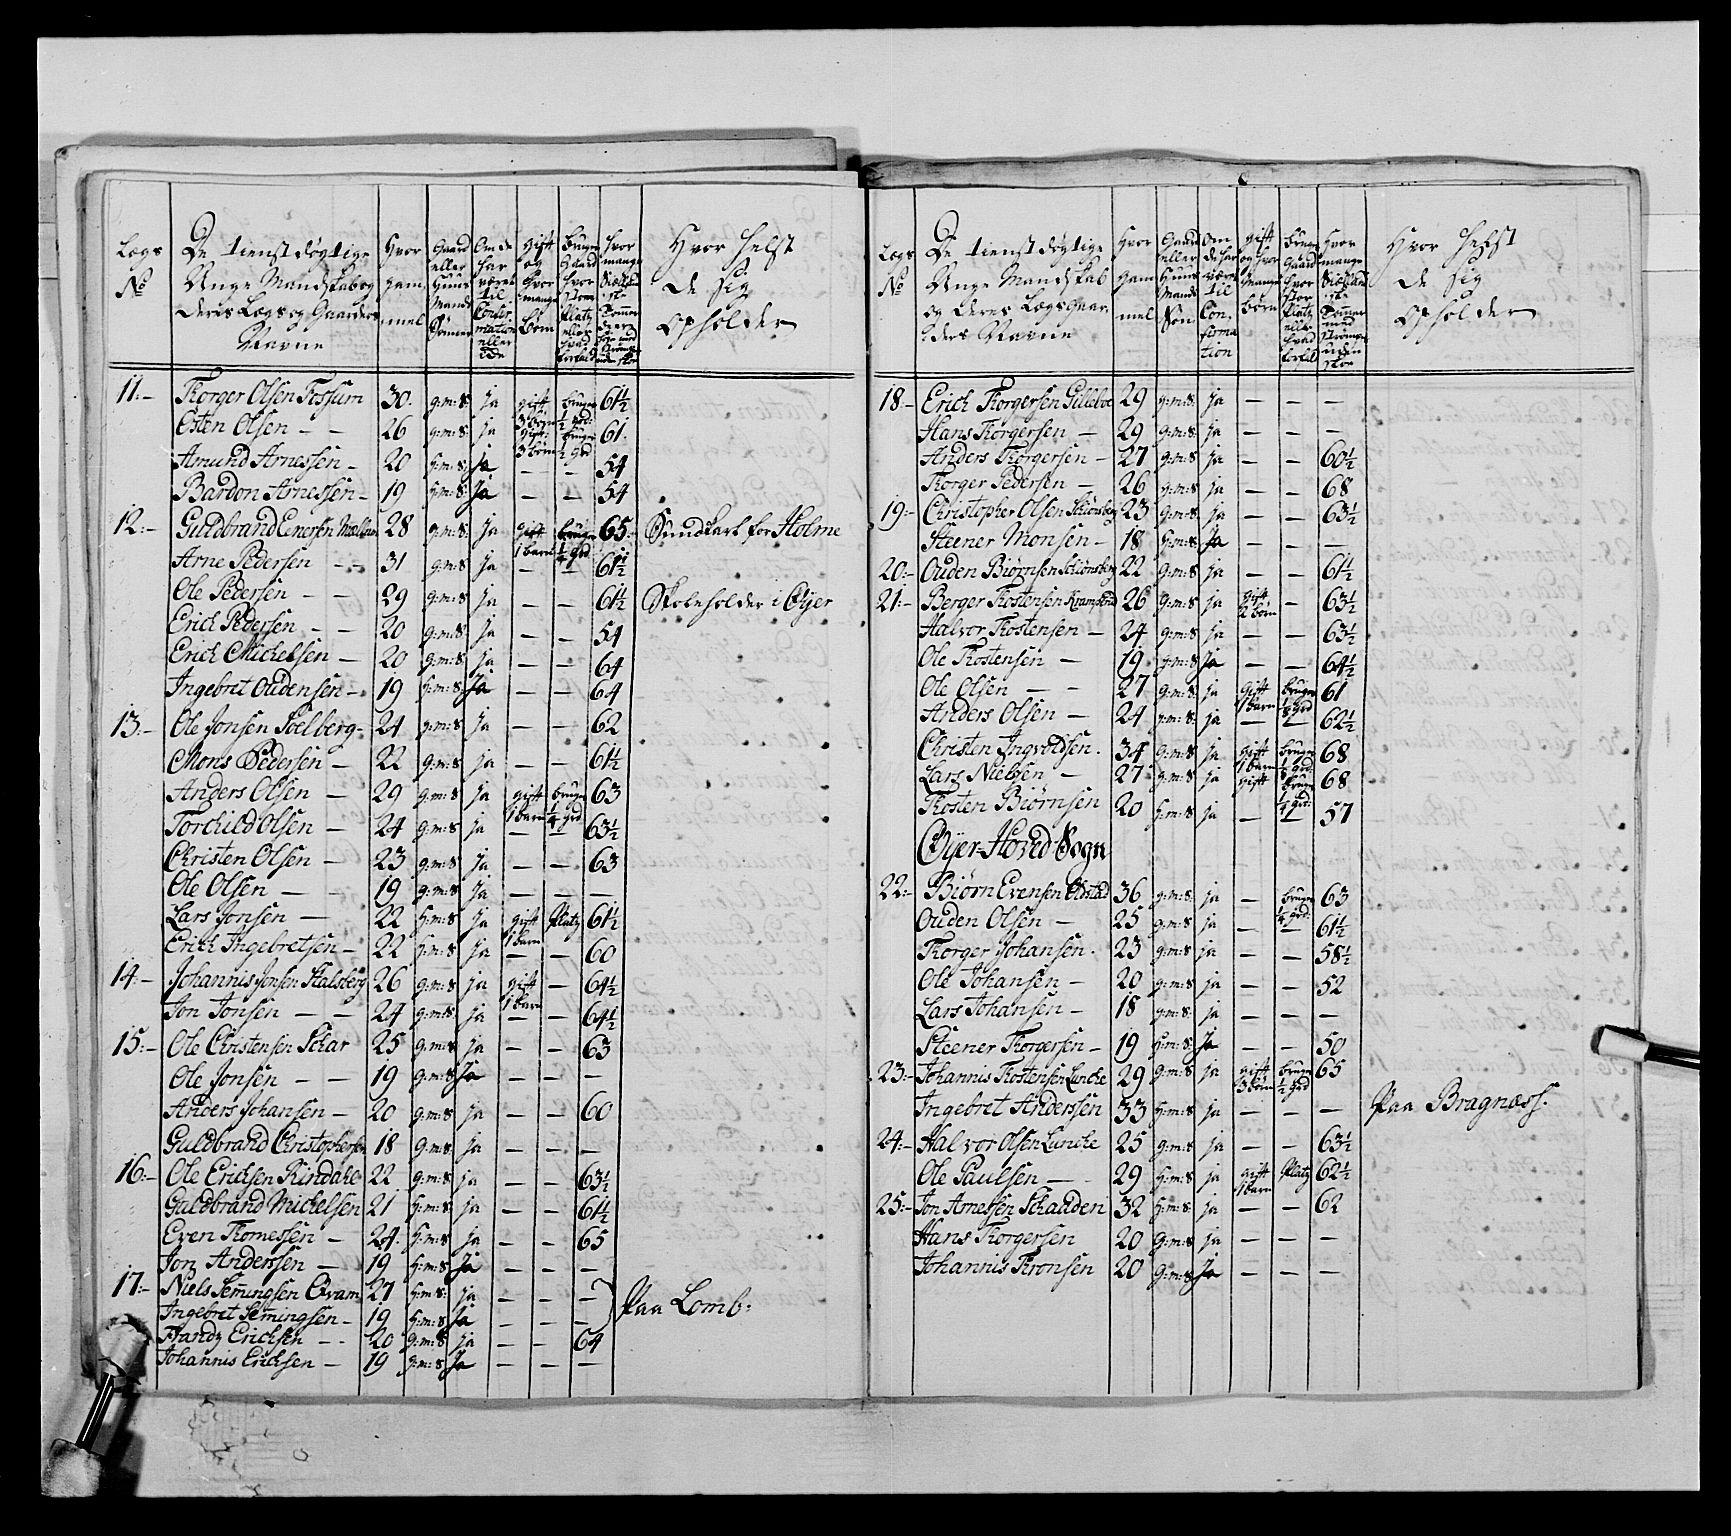 Lægs No | De tienstdøgtige Unge Mandskab og deres Lægs og Gaarders Navne | Hvor gammel | Gaard eller Huus Mands Sønner | Om de har været til Confirmation eller Ide | gift og hvor mange børn | bruger Gaard hvor stor Platz eller hvad forfald | hvor mange | Hvor helst de sig opholder
11:- Torger Olsen Fossum 30 g:m:s: ja gift 3 børn bruger ½ grd: 61½
Esten Olsen - - 26 g:m:s: ja gift 3 børn bruger ½ grd 61
Amund Arnessen - 20 h:m:s: Ja - - 54
Bardon Arnessen - 19 h:m:s: Ja - - 54
12:- Guldbrand Enersen 28 g:m:s: ja gift 1 barn bruger ¼ grd 65 Sundkarl for Holme
Arne Pedersen - - 31 g:m:s ja - - 61½
Ole Pedersen - - 29 g:m:s ja - - 61½ Skoleholder i Øyer
Erich Pedersen - - 20 g:m:s ja - - 54
Erich Michelsen - 20 g:m:s ja - - 64
Ingebret Oudensen - 19 h:m:s Ja - - 64
13:- Ole Jonsen Soelberg - 24 g:m:s ja - - 62
Mons Pedersen - 22 g:m:s ja - - 61½
Anders Olsen - 29 g:m:s ja gift 1 barn bruger ¼ grd 63
Torchild Olsen - 24 g:m:s ja - - 63½
Christen Olsen - 23 g:m:s ja - - 63
Ole Olsen - - 19 g:m:s ja - - -
Lars Jonsen - 22 h:m:s ja gift 1 barn Platz 61½
Erich Ingebretsen - 22 h:m:s ja - - 60
14:- Johannis Jonsen Stalsberg 26 g:m:s ja gift 1 barn - 64½
Jon Jonsen - - 24 g:m:s ja - - 64½
15:- Ole Christensen Schar 25 g:m:s ja - - 63
Ole Jonsen - - 19 g:m:s Ja - - -
Anders Johansen - 20 g:m:s ja - - 60
Guldbrand Christophersen 18 g:m:s ja - - -
16:- Ole Erichsen Rindahl 22 g:m:s ja - - 63½
Guldbrand Michelsen 21 h:m:s ja - - 61½
Even Tomessen - 24 h:m:s ja - - 65
Jon Anderssen - 19 h:m:s Ja - - -
17:- Niels Semingsen Qvam 27 h:m:s: ja - - - Paa Lomb:
Ingebret Semingsen - 19 h:m:s Ja - - -
Frandz Erichsen - - 20 g:m:s ja - - 64
Johannis Erichsen - 19 g:m:s Ja - - -
Lægs No | De tienstdøgtige Unge Mandskab og deres Lægs Gaarders Navne | Hvor gammel | Gaard eller Huus Mands Søn | Om de har været til Confirmation | gift og hvor mange børn | bruger Gaard hvor stor Platz eller hvad forfald | Hvor mange | Hvor helst de sig opholder
18:- Erich Torgersen Gilleboe 29 g:m:s: ja - - -
Hans Torgersen - 29 g:m:s ja - - -
Anders Torgersen - 27 g:m:s ja - - 60½
Torger Pedersen - 26 g:m:s ja - - 68
19:- Christopher Olsen Schiønsberg 23 g:m:s ja - - 63½
Steener Monsen - 18 h:m:s Ja - - -
20:- Ouden Biørnsen Schiønsberg 22 g:m:s ja - - 61½
21:- Berger Tostensen 26 g:m:s ja gift 2 børn - 63½
Halvor Tostensen - 24 g:m:s ja - - 63½
Ole Tostensen - 19 g:m:s Ja - - 64½
Ole Olsen - - 27 g:m:s: ja gift 1 barn bruger ⅛ grd 61
Anders Olsen - 24 g:m:s: ja - - 62½
Christen Ingvoldsen. 34 g:m:s ja gift 1 barn bruger ⅛ grd 68
Lars Nielsen - 27 g:m:s ja gift bruger ¼ grd: 68
Tosten Biørnsen 20 h:m:s ja - - 57
Øyer-Hoved Sogn
22:- Biørn Evensen 36 g:m:s ja - bruger ¼ grd: 63
Ouden Olsen - 25 g:m:s ja - - 61½
Torger Johansen. 23 g:m:s ja - - 58½
Ole Johansen - 20 g:m:s ja - - 52
Lars Johansen - 18 g:m:s ja - - -
Steener Torgersen - 19 h:m:s: Ja - - 50
23:- Johannis Tostensen Luncke 29 g:m:s ja gift 3 børn bruger ½ grd 65
Ingebret Anderssen 33 h:m:s ja - - - Paa Bragnæss.
24:- Halvor Olsen Luncke 25 g:m:s ja - - 63½
Ole Paulsen - 29 h:m:s ja gift 1 barn Platz 62½
25:- Jon Arnessen Schauden 32 h:m:s: ja - - 62
Hans Torgersen 20 g:m:s ja - - -
Johannis Tronsen 20 g:m:s Ja - - -